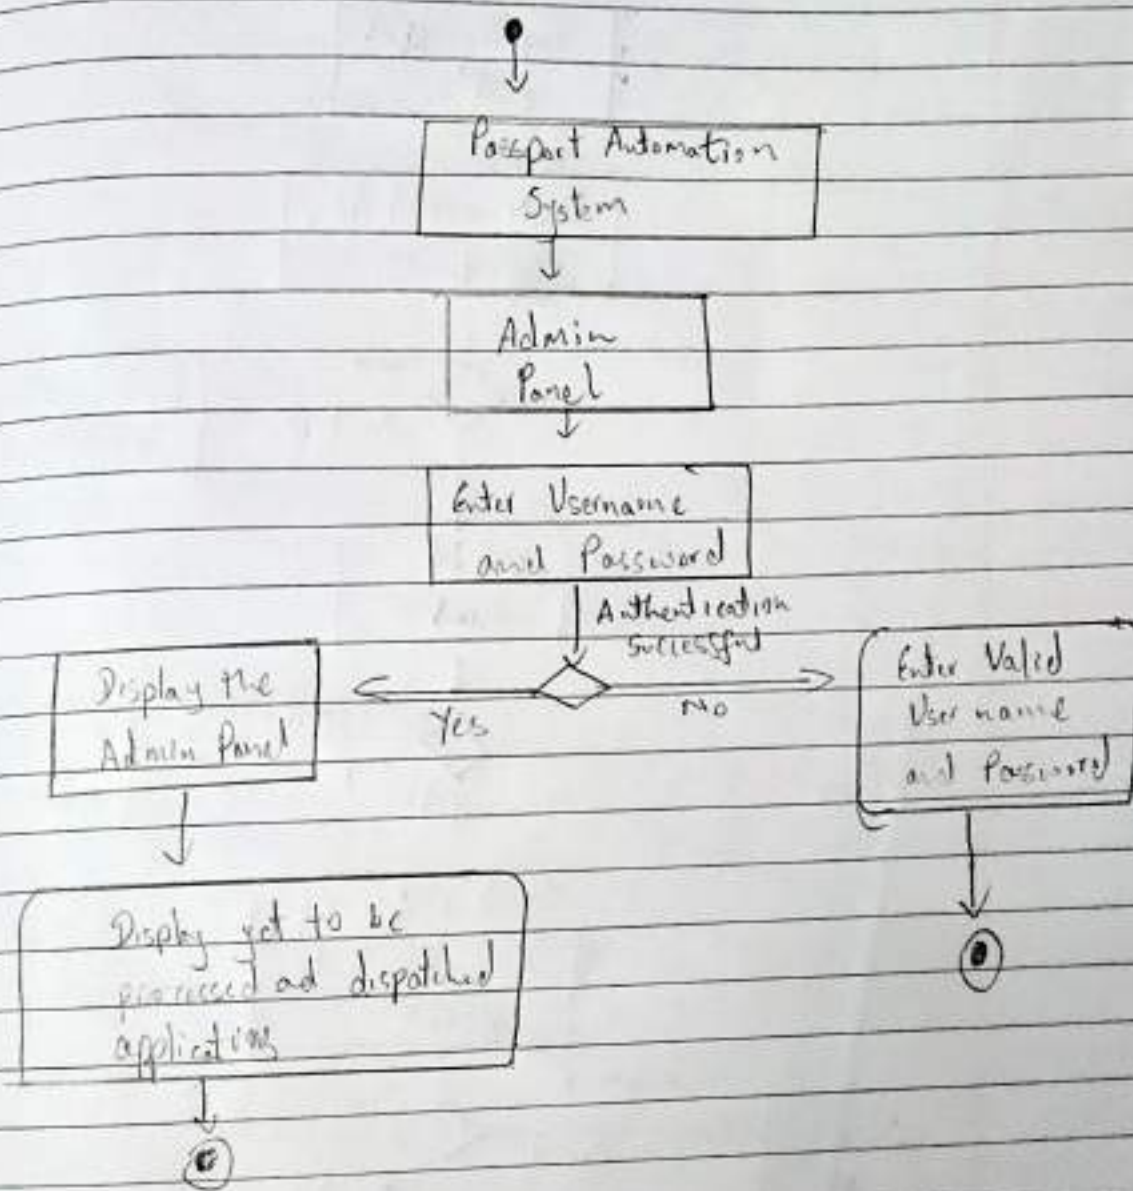 Passport Automation
System
Admin
Panel
Enter Username
and Password
Authentication
Successful
Yes
No
Display the
Admin Panel
Enter Valid
User name
and Password
Display yet to be
processed ad dispatched
applications